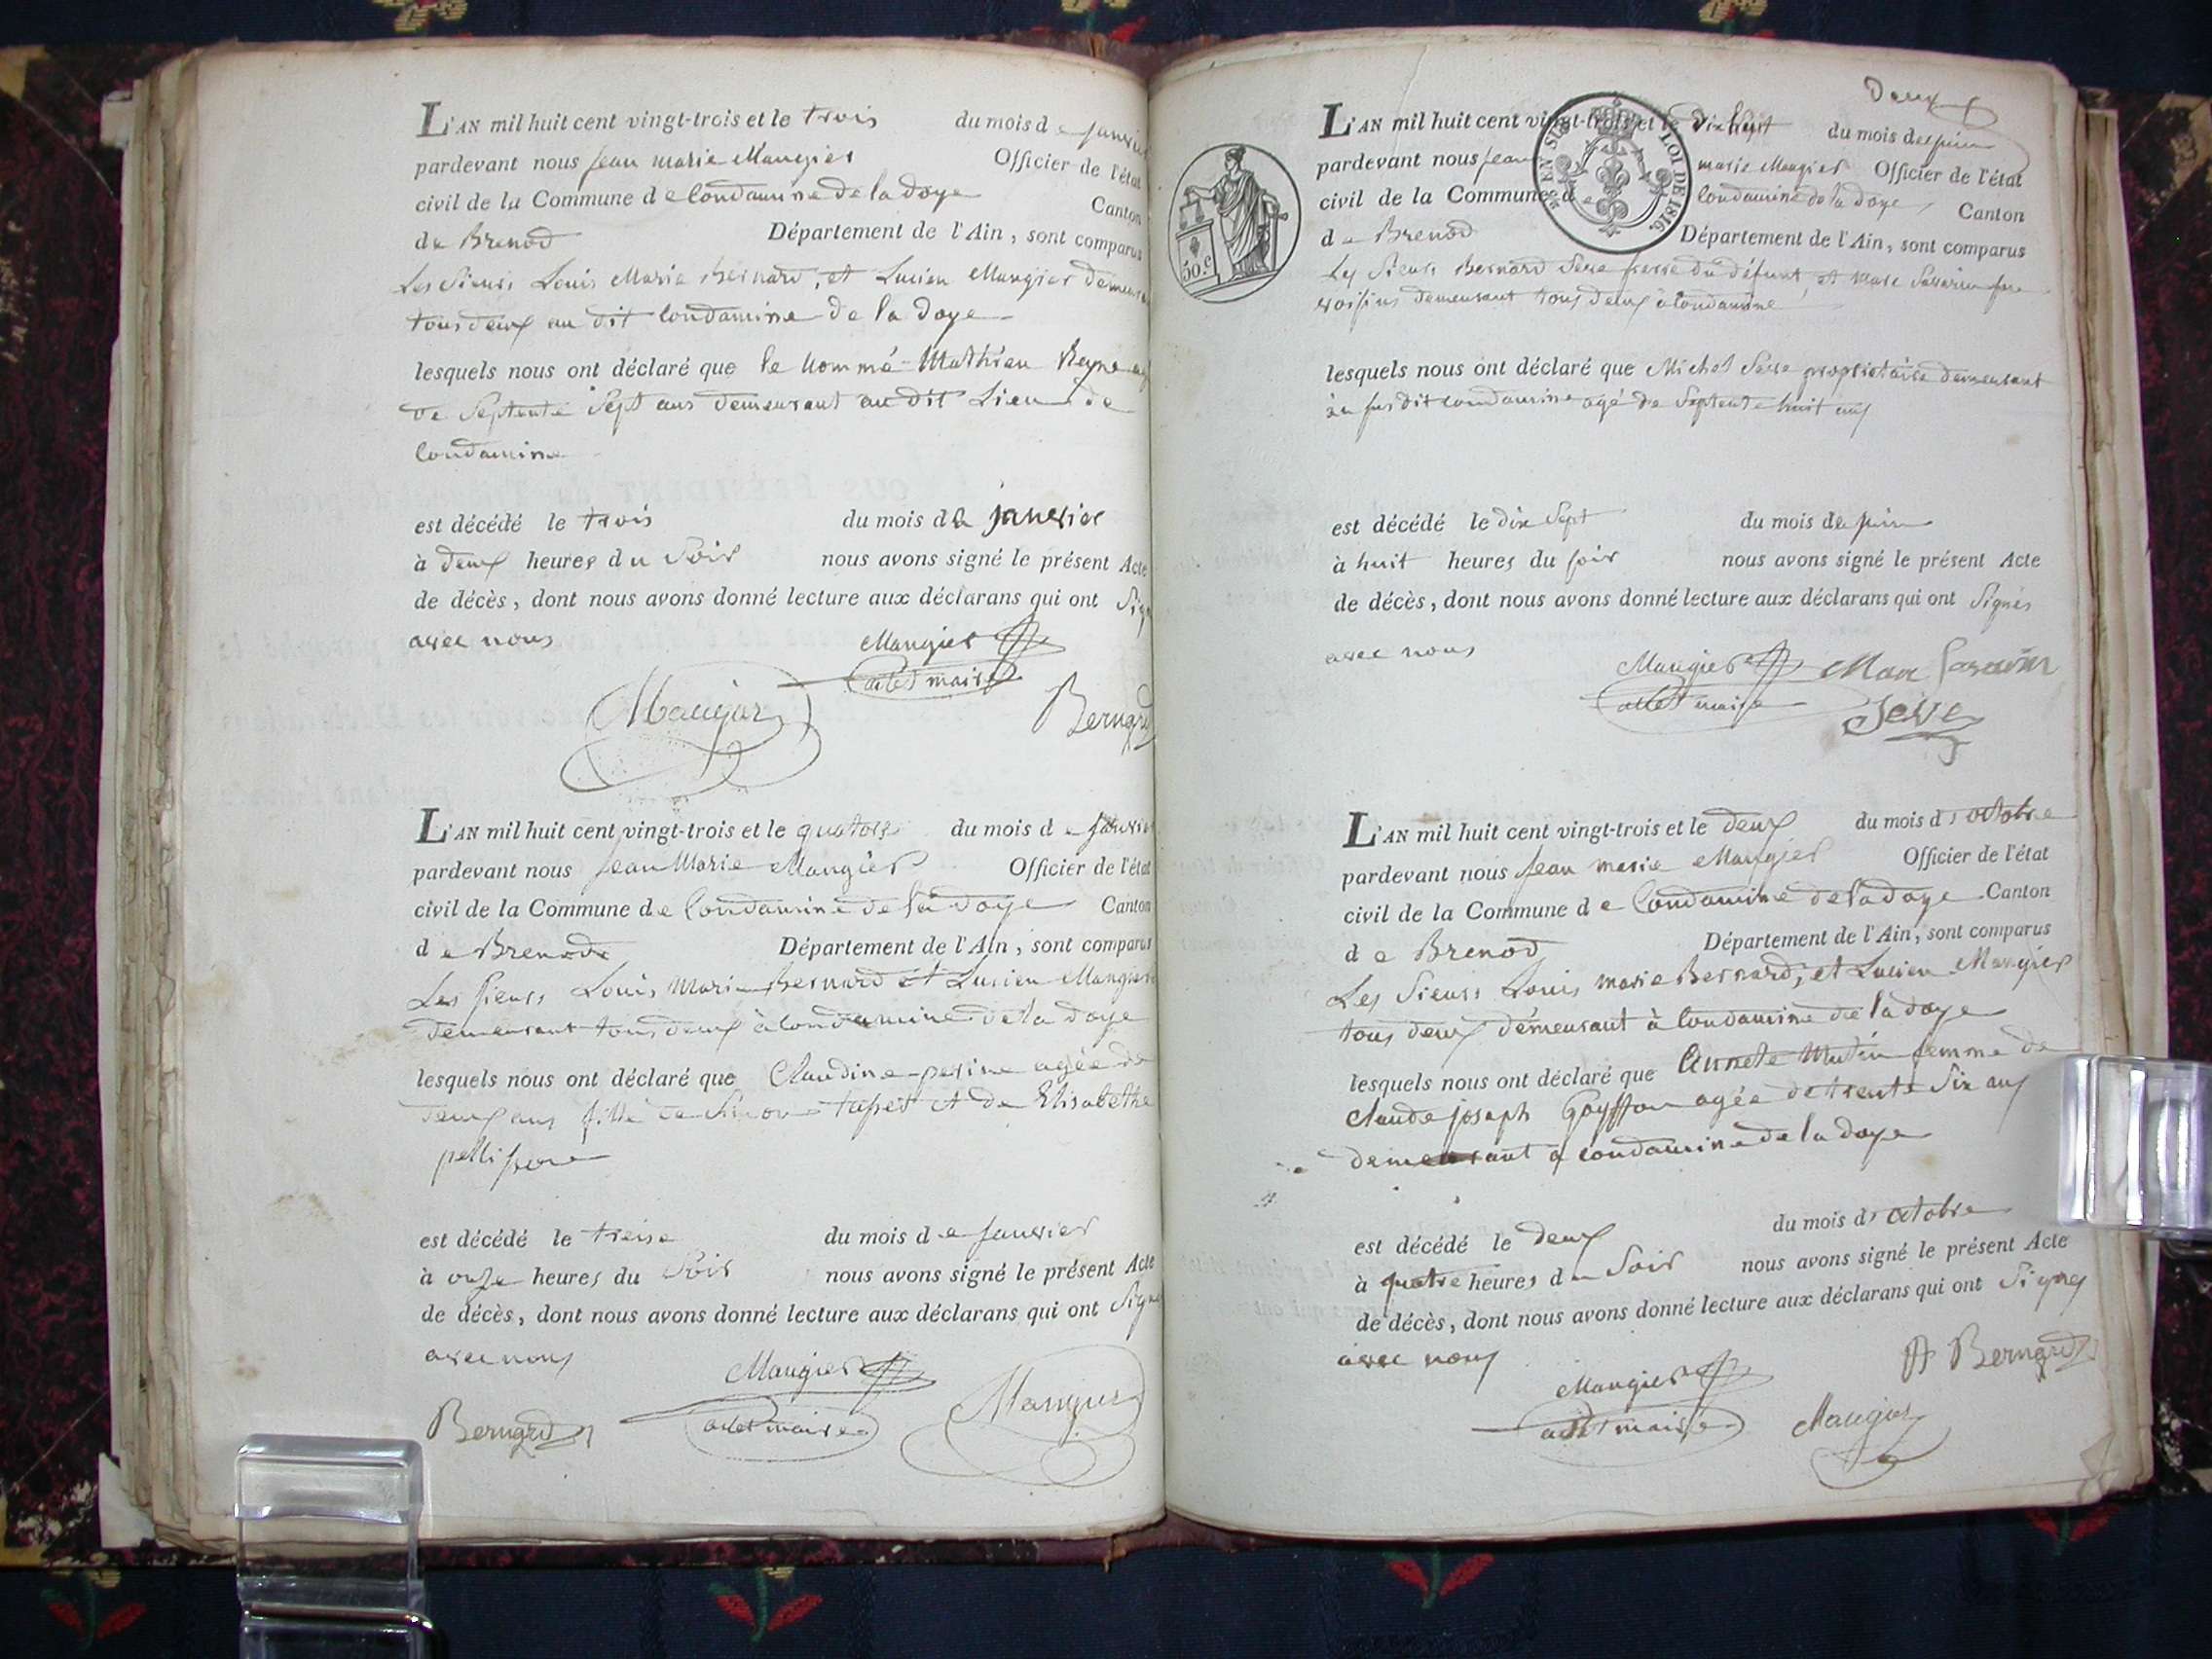 L'AN mil huit cent vingt-trois et le trois du mois de janvier
pardevant nous jean marie Maugier Officier de l'état
civil de la Commune de Condamine de la doye Canton
de Brenod Département de l'Ain, sont comparus
Les Sieurs Louis Marie Bernard, et Lucien Maugier demeurant
tous deux au dit Condamine de la doye
lesquels nous ont déclaré que le nommé Mathieu
de Septente Sept ans demeurant au dit Lieu de
Condamine
est décédé le trois du mois de janvier
à deux heures du Soir nous avons signé le présent Acte
de décès, dont nous avons donné lecture aux déclarans qui ont Signé
avec nous Maugier
adet maire
Maugier Bernard
L'AN mil huit cent vingt-trois et le quatorse du mois de janvier
pardevant nous jean Marie Maugier Officier de l'état
civil de la Commune de Condamine de la doye Canton
de Brenod Département de l'Ain, sont comparus
Les Sieurs Louis Marie Bernard et Lucien Maugier
demeurant tous deux à Condamine de la doye
lesquels nous ont déclaré que Claudine perine agée de
deux ans fille de Simon tapet et de Elisabethe
est décédé le treise du mois de janvier
à onze heures du Soir nous avons signé le présent Acte
de décès, dont nous avons donné lecture aux déclarans qui ont Signé
avec nous Maugier
Bernard adet maire Maugier
Deux
L'AN mil huit cent vingt-trois et le dix huit du mois de juin
pardevant nous jean marie Maugier Officier de l'état
civil de la Commune de Condamine de la doye, Canton
de Brenod Département de l'Ain, sont comparus
EN SUS LOI DE 1816.
50.c
Les Sieurs Bernard Seve frere du défunt, et Marc Savarin
voisins demeurant tous deux à Condamine
lesquels nous ont déclaré que Michel Seve propriétaire demeurant
au sus dit Condamine agé de Septente huit ans
est décédé le dix Sept du mois de juin
à huit heures du soir nous avons signé le présent Acte
de décès, dont nous avons donné lecture aux déclarans qui ont Signés
avec nous Maugier Marc Savarin
adet maire Seve
L'AN mil huit cent vingt-trois et le deux du mois d'octobre
pardevant nous jean marie Maugier Officier de l'état
civil de la Commune de Condamine de la doye Canton
de Brenod Département de l'Ain, sont comparus
Les Sieurs Louis marie Bernard, et Lucien Maugier
tous deux démeurant à Condamine de la doye
lesquels nous ont déclaré que Annete Mutin femme de
Claude joseph Goyffon agée de trente Six ans
demeurant a condamine de la doye
est décédé le deux du mois d'octobre
à quatre heures du Soir nous avons signé le présent Acte
de décès, dont nous avons donné lecture aux déclarans qui ont Signes
avec nous Bernard
Maugier
adet maire Maugier